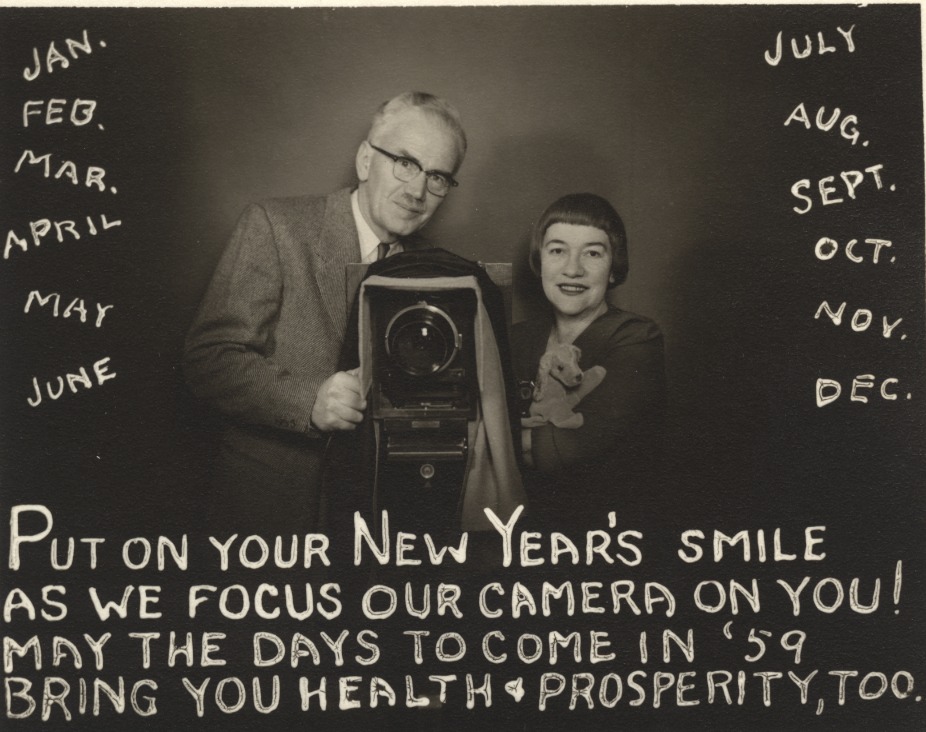 JAN.
FEB.
MAR.
APRIL
MAY
JUNE
JULY
AUG.
SEPT.
OCT.
NOV.
DEC.
PUT ON YOUR NEW YEAR'S SMILE
AS WE FOCUS OUR CAMERA ON YOU!
MAY THE DAYS TO COME IN '59
BRING YOU HEALTH & PROSPERITY, TOO.